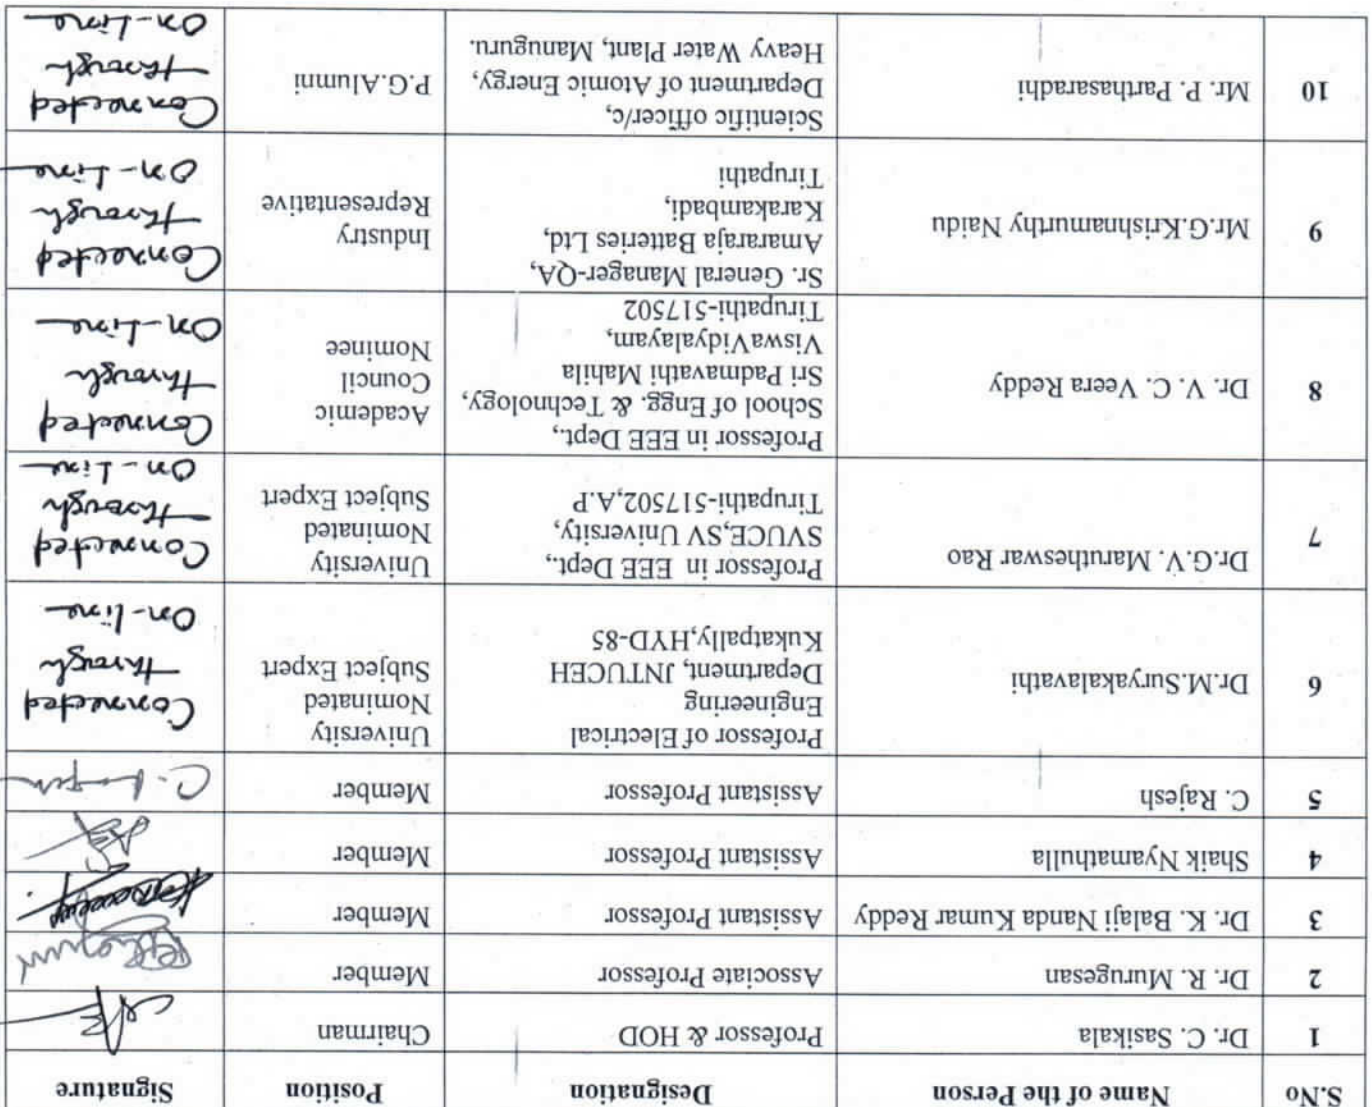 S.No Name of the Person Designation Position Signature
1 Dr. C. Sasikala Professor & HOD Chairman
2 Dr. R. Murugesan Associate Professor Member
3 Dr. K. Balaji Nanda Kumar Reddy Assistant Professor Member
4 Shaik Nyamathulla Assistant Professor Member
5 C. Rajesh Assistant Professor Member
6 Dr.M.Suryakalavathi
Professor of Electrical
Engineering
Department, JNTUCEH
Kukatpally,HYD-85
University
Nominated
Subject Expert
Connected
through
On-line
7 Dr.G.V. Marutheswar Rao
Professor in EEE Dept.,
SVUCE,SV University,
Tirupathi-517502,A.P
University
Nominated
Subject Expert
Connected
through
On-Line
8 Dr. V. C. Veera Reddy
Professor in EEE Dept.,
School of Engg. & Technology,
Sri Padmavathi Mahila
ViswaVidyalayam,
Tirupathi-517502
Academic
Council
Nominee
Connected
through
On-Line
9 Mr.G.Krishnamurthy Naidu
Sr. General Manager-QA,
Amararaja Batteries Ltd,
Karakambadi,
Tirupathi
Industry
Representative
Connected
through
On-Line
10 Mr. P. Parthasaradhi
Scientific officer/c,
Department of Atomic Energy,
Heavy Water Plant, Manuguru.
P.G.Alumni
Connected
through
On-Line